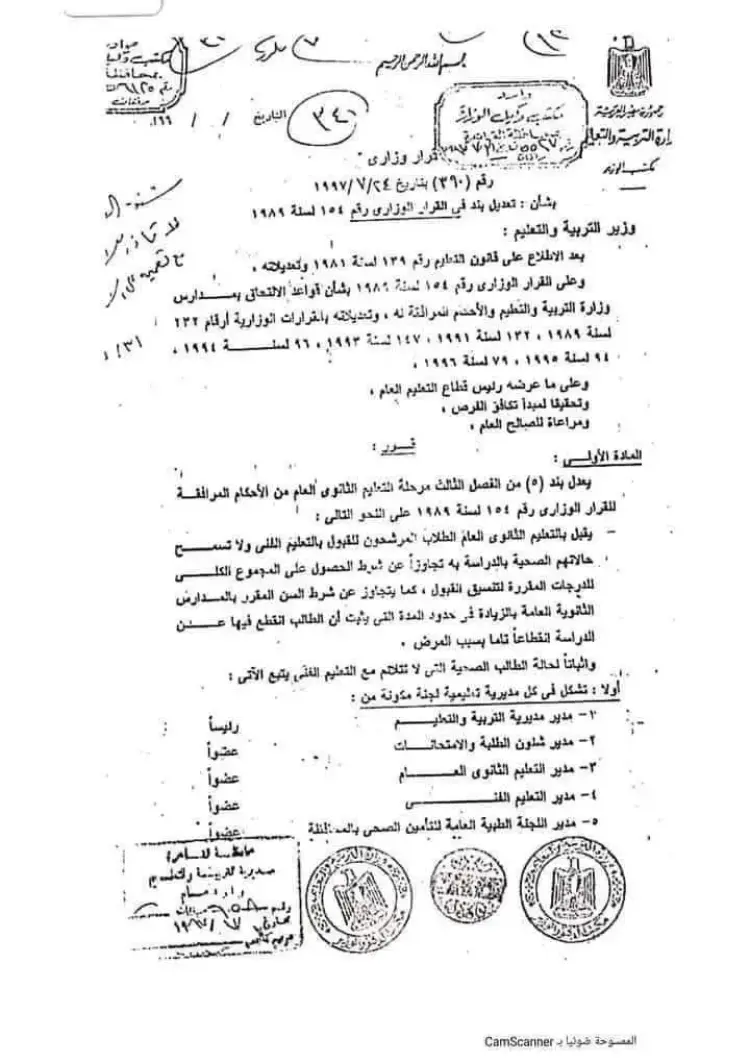 بسم الله الرحمن الرحيم
جمهورية مصر العربية
وزارة التربية والتعليم
مكتب الوزير
التاريخ / / ١٩٩
٣٤٠
قرار وزارى
رقم (٣٩٠) بتاريخ ١٩٩٧/٧/٢٤
بشأن : تعديل بند فى القرار الوزارى رقم ١٥٤ لسنة ١٩٨٩
وزير التربية والتعليم :
بعد الاطلاع على قانون التعليم رقم ١٣٩ لسنة ١٩٨١ وتعديلاته ،
وعلى القرار الوزارى رقم ١٥٤ لسنة ١٩٨٩ بشأن قواعد الالتحاق بمدارس
وزارة التربية والتعليم والأحكام المرافقة له ، وتعديلاته بالقرارات الوزارية أرقام ٢٣٢
لسنة ١٩٨٩ ، ١٣٢ لسنة ١٩٩١ ، ١٤٧ لسنة ١٩٩٣ ، ٩٦ لسنة ١٩٩٤ ،
٩٤ لسنة ١٩٩٥ ، ٧٩ لسنة ١٩٩٦ ،
وعلى ما عرضه رئيس قطاع التعليم العام ،
وتحقيقا لمبدأ تكافؤ الفرص ،
ومراعاة للصالح العام ،
قرر :
المادة الأولى :
يعدل بند (٥) من الفصل الثالث مرحلة التعليم الثانوى العام من الأحكام المرافقة
للقرار الوزارى رقم ١٥٤ لسنة ١٩٨٩ على النحو التالى :
– يقبل بالتعليم الثانوى العام الطلاب المرشحون للقبول بالتعليم الفنى ولا تسمح
حالاتهم الصحية بالدراسة به تجاوزاً عن شرط الحصول على المجموع الكلى
للدرجات المقررة لتنسيق القبول ، كما يتجاوز عن شرط السن المقرر بالمدارس
الثانوية العامة بالزيادة فى حدود المدة التى يثبت أن الطالب انقطع فيها عن
الدراسة انقطاعاً تاما بسبب المرض .
واثباتاً لحالة الطالب الصحية التى لا تتلائم مع التعليم الفنى يتبع الآتى :
أولا : تشكل فى كل مديرية تعليمية لجنة مكونة من :
١– مدير مديرية التربية والتعليم رئيساً
٢– مدير شئون الطلبة والامتحانات عضواً
٣– مدير التعليم الثانوى العام عضواً
٤– مدير التعليم الفنى عضواً
٥– مدير اللجنة الطبية العامة للتأمين الصحى بالمحافظة عضواً
محافظة القاهرة
مديرية التربية والتعليم
الممسوحة ضوئيا بـ CamScanner